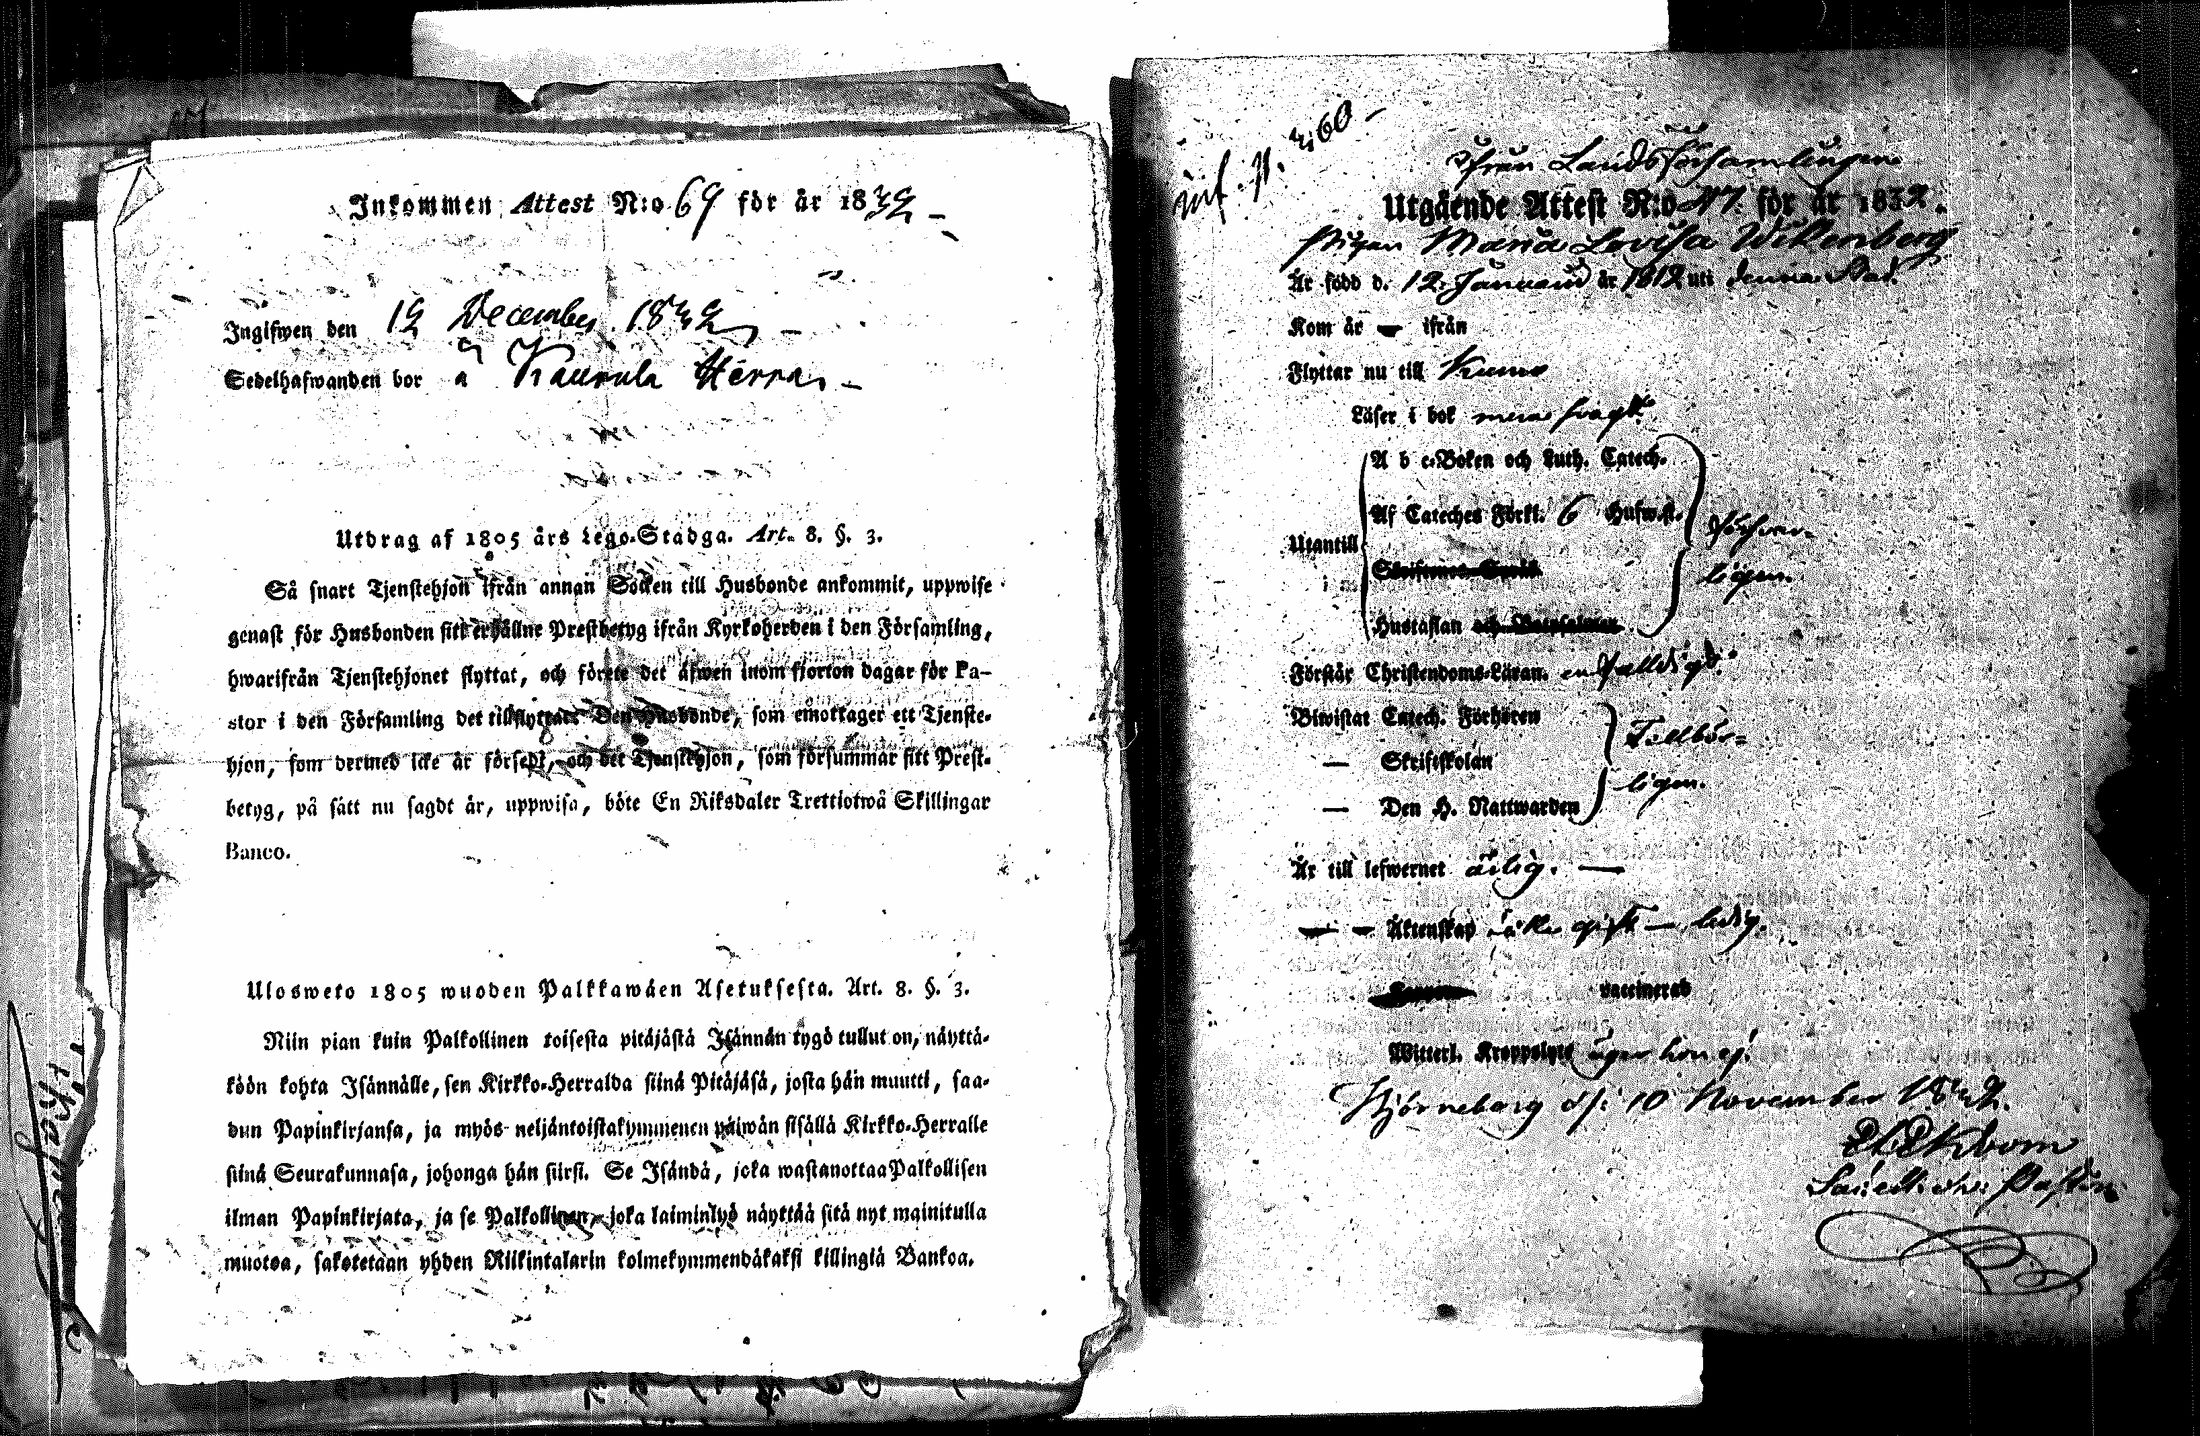 Inkommen Attest N:o 69 för år 1832 –
Ingifwen den 12 December 1832 –
Sedelhafwanden bor å Kaurula Herra, –
Utdrag af 1805 års Lego-Stadga. Art. 8. §. 3.
Så snart Tjenstehjon ifrån annan Socken till Husbonde ankommit, uppwise
genast för Husbonden sitt erhållne Prestbetyg ifrån Kyrkoherden i den Församling,
hwarifrån Tjenstehjonet flyttat, och förete det äfwen inom fjorton dagar för Pa-
stor i den Församling det tillflyttat. Den Husbonde, som emottager ett Tjenste-
hjon, som dermed icke är försedt, och det Tjenstehjon, som försummar sitt Prest-
betyg, på sätt nu sagdt är, uppwisa, böte En Riksdaler Trettiotwå Skillingar
Banco.
Ulosweto 1805 wuoden Palkkawäen Asetuksesta. Art. 8. §. 3.
Niin pian kuin Palkollinen toisesta pitäjästä Isännän tygö tullut on, näyttä-
köön kohta Isännälle, sen Kirkko-Herralda siinä Pitäjäsä, josta hän muutti, saa-
dun Papinkirjansa, ja myös neljäntoistakymmenen päiwän sisällä Kirkko-Herralle
siinä Seurakunnasa, johonga hän siirsi. Se Isändä, joka wastanottaa Palkollisen
ilman Papinkirjata, ja se Palkollinen, joka laiminlyö näyttää sitä nyt mainitulla
muotoa, sakotetaan yhden Riikintalarin kolmekymmendäkaksi killingiä Bankoa.
inf. p. 260 –
Från Landsförsamlingen
Utgående Attest N:o 47. för år 1832.
Pigan Maria Lovisa Wikenberg
Är född d. 12 Januarii år 1812 uti denna Stad.
Kom år – ifrån
Flyttar nu till Kumo
Läser i bok mera svagt
A b c-Boken och Luth. Catech.
Af Cateches Förkl. 6 Hufwst.
Utantill
Försvar-
ligen.
Skriftenes Språk
Hustaflan och
Förstår Christendoms-Läran. enfaldigt.
Biwistat Catech. Förhören
— Skriftskolan
— Den H. Nattwarden
Tillbör-
ligen.
Är till lefwernet ärlig. —
Äktenskap icke gift — ledig.
vaccinerad
Witterl. Kroppslyte äger hon ej.
Björneborg d. 10 November 1832.
Ekbom